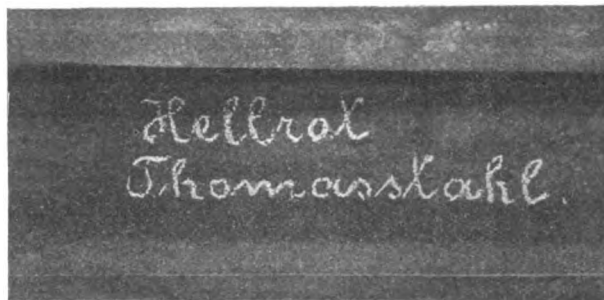 Hellrot
Thomasstahl.